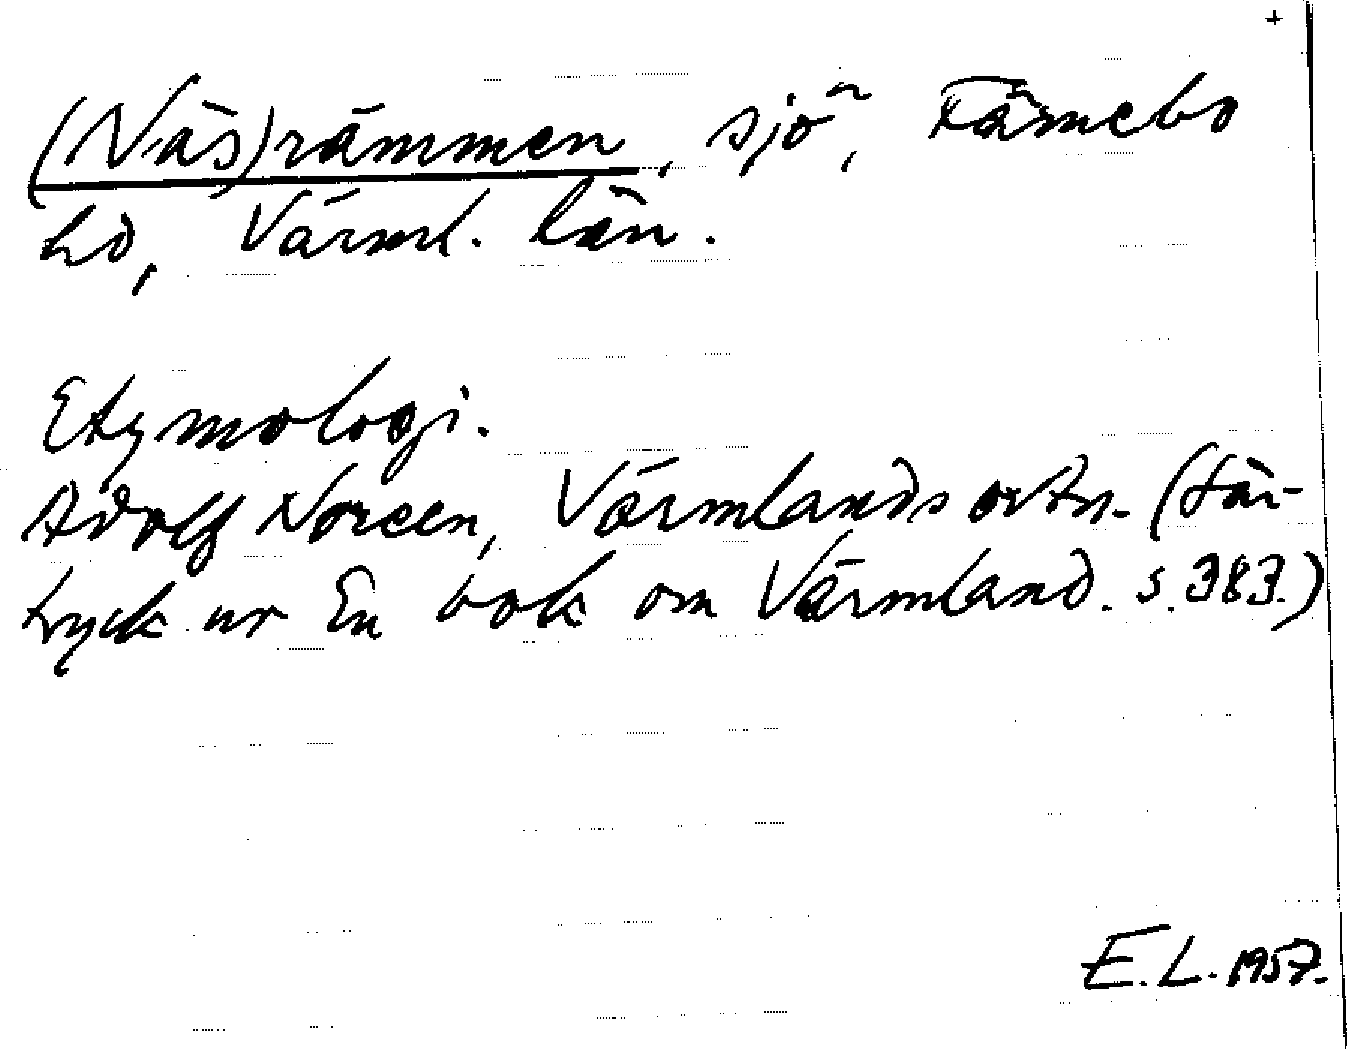 +
(Näs)rämmen, sjö, Färnebo
hd, Värml. län.
Etymologi.
Adolf Noreen, Värmlands ortn. (Sär-
tryck ur En bok om Värmland. s. 383.)
E. L. 1957.